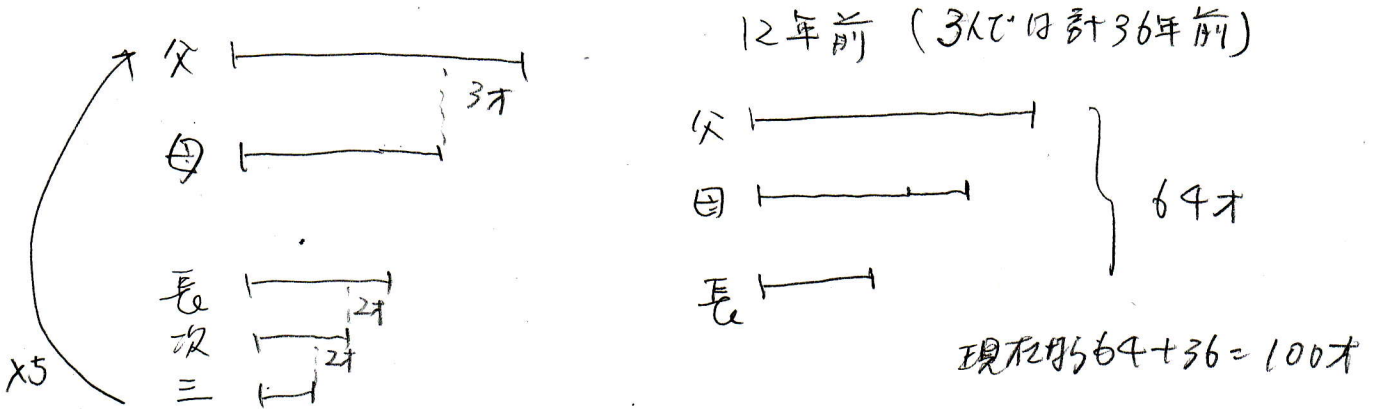 父
3才
母
長
2才
次
2才
三
×5
12年前(3人では計36年前)
父
母
64才
長
現在なら64+36=100才